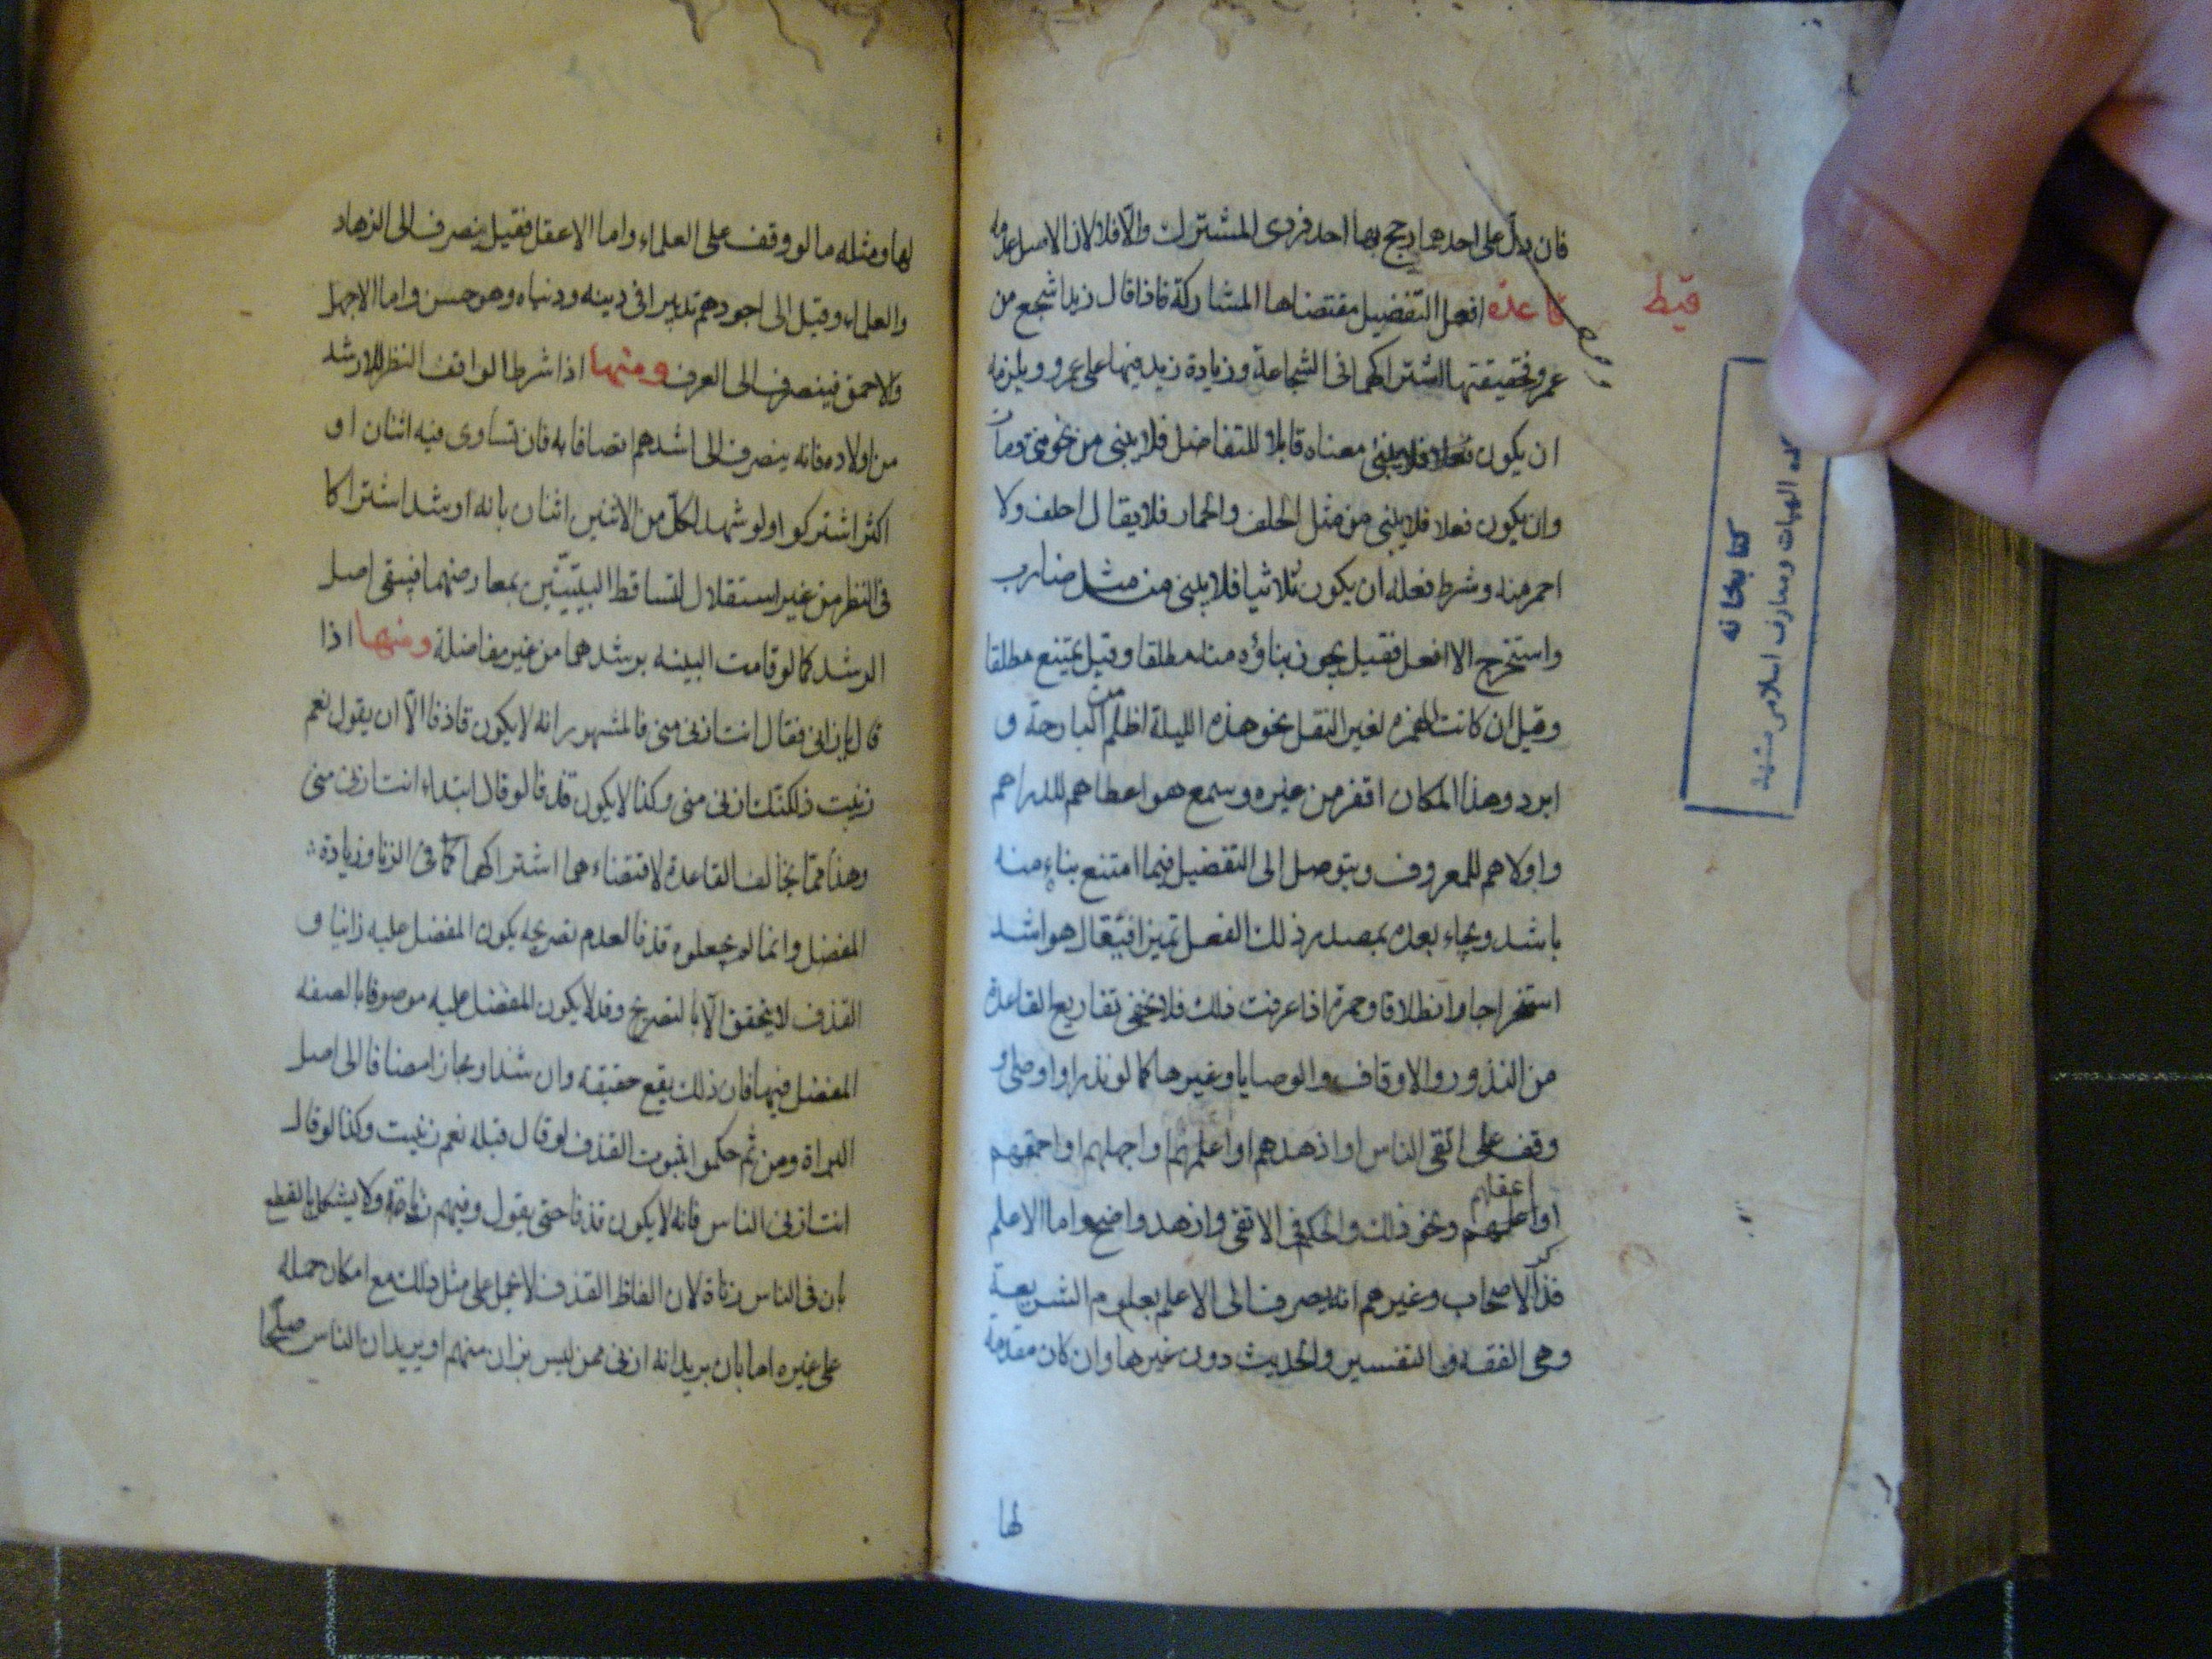 فان دل على احدهما رجح بها احد فردى المشترك والا فلا لان الاصل عدمه
قيط
قاعدة افعل التفضيل مقتضاها المشاركة فاذا قال زيد اشجع من
عمرو فحقيقتها اشتراكهما فى الشجاعة وزيادة زيد فيها على عمرو ويلزمه
ان يكون معناه قابلا للتفاضل فلا يبنى من نحو فنى ومات
وان يكون فعلا فلا يبنى من مثل الحلف والحمار فلا يقال احلف ولا
احمر منه وشرط فعله ان يكون ثلاثيا فلا يبنى من مثل ضارب
واستخرج الا افعل فقيل يجوز بناؤه منه مطلقا وقيل يمتنع مطلقا
وقيل ان كانت الهمزة لغير النقل نحو هذه الليلة اظلم من البارحة و
ابرد وهذا المكان اقفر من غيره وسمع هو اعطاهم للدراهم
واولاهم للمعروف ويتوصل الى التفضيل فيما امتنع بناء منه
باشد ويجاء بعده بمصدر ذلك الفعل تميزا فيقال هو اشد
استخراجا وانطلاقا وحمرة اذا عرفت ذلك فلا يخفى تفاريع القاعدة
من النذور والاوقاف والوصايا وغيرها كما لو نذر او اوصى او
وقف على اتقى الناس او ازهدهم او اعلمهم او اجهلهم او احمقهم
او اعقلهم ونحو ذلك والحكم فى الاتقى وازهد واضح واما الاعلم
فذكر الاصحاب وغيرهم انه يصرف الى الاعلم بعلوم الشريعة
وهى الفقه والتفسير والحديث دون غيرها وان كان مقدمة
لها
كتابخانه
الهيات ومعارف اسلامى مشهد
لها ومثله ما لو وقف على العلماء واما الاعقل فقيل ينصرف الى الزهاد
والعلماء وقيل الى اجودهم تدبيرا فى دينه ودنياه وهو حسن واما الاجهل
والاحمق فينصرف الى العرف ومنها اذا شرط الواقف النظر للارشد
من اولاده فانه ينصرف الى اشدهم اتصافا به فان تساوى فيه اثنان او
اكثر اشتركوا ولو شهد لكل من الاثنين اثنان بانه ارشد اشتركا
فى النظر من غير استقلال لتساقط البينتين بتعارضهما فيبقى اصل
الرشد كما لو قامت البينه برشدهما من غير مفاضلة ومنها اذا
قال يا زانى فقال انت ازنى منى فالمشهور انه لا يكون قاذفا الا ان يقول نعم
زنيت ولكنك ازنى منى وكذا لا يكون قذفا لو قال ابتداء انت ازنى منى
وهذا مما يخالف القاعدة لاقتضاءهما اشتراكهما فى الزنا وزيادة
المفضل وانما لم يجعلوه قذفا لعدم تصريحه بكون المفضل عليه زانيا و
القذف لا يتحقق الا بالتصريح وقد لا يكون المفضل عليه موصوفا بالصفه
المفضل فيها فان ذلك يقع حقيقة وان شذ او مجازا مضافا الى اصل
البراة ومن ثم حكموا بثبوت القذف لو قال قبله نعم زنيت وكذا لو قال
انت ازنى الناس فانه لا يكون قذفا حتى يقول وفيهم زناة ولا يشكل بالقطع
بان فى الناس زناة لان الفاظ القذف لا تحمل على مثل ذلك مع امكان حمله
على غيره اما بان يريد انه ازنى ممن ليس بزان منهم او يريد ان الناس صلحا